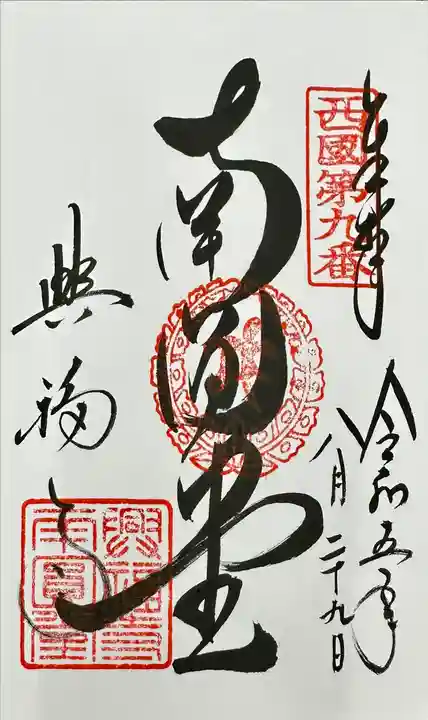 奉拝
西國第九番
令和五年
八月二十九日
南円堂
興福寺
興福寺
南圓堂